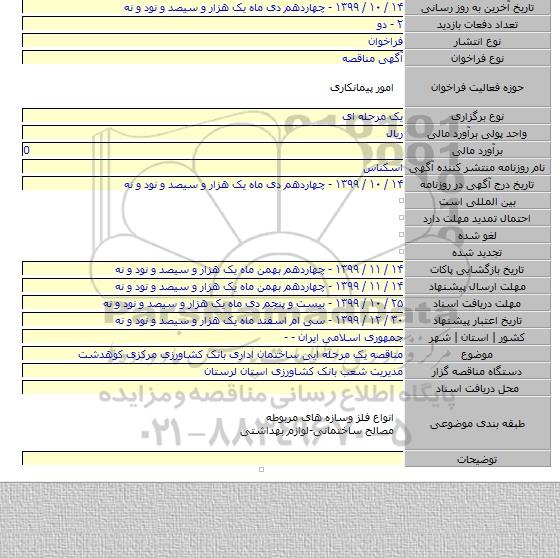 تاریخ آخرین به روز رسانی ۱۴ / ۱۰ / ۱۳۹۹ - چهاردهم دی ماه یک هزار و سیصد و نود و نه
تعداد دفعات بازدید ۲ - دو
نوع انتشار فراخوان
نوع فراخوان آگهی مناقصه
حوزه فعالیت فراخوان امور پیمانکاری
نوع برگزاری یک مرحله ای
واحد پولی برآورد مالی ریال
برآورد مالی 0
نام روزنامه منتشر کننده آگهی اسکناس
تاریخ درج آگهی در روزنامه ۱۴ / ۱۰ / ۱۳۹۹ - چهاردهم دی ماه یک هزار و سیصد و نود و نه
بین المللی است
احتمال تمدید مهلت دارد
لغو شده
تجدید شده
تاریخ بازگشایی پاکات ۱۴ / ۱۱ / ۱۳۹۹ - چهاردهم بهمن ماه یک هزار و سیصد و نود و نه
مهلت ارسال پیشنهاد ۱۴ / ۱۱ / ۱۳۹۹ - چهاردهم بهمن ماه یک هزار و سیصد و نود و نه
مهلت دریافت اسناد ۲۵ / ۱۰ / ۱۳۹۹ - بیست و پنجم دی ماه یک هزار و سیصد و نود و نه
تاریخ اعتبار پیشنهاد ۳۰ / ۱۲ / ۱۳۹۹ - سی ام اسفند ماه یک هزار و سیصد و نود و نه
کشور | استان | شهر جمهوری اسلامی ایران - -
موضوع مناقصه یک مرحله ایی ساختمان اداری بانک کشاورزی مرکزی کوهدشت
دستگاه مناقصه گزار مدیریت شعب بانک کشاورزی استان لرستان
محل دریافت اسناد
طبقه بندی موضوعی انواع فلز وسازه های مربوطه
مصالح ساختمانی-لوازم بهداشتی
توضیحات
ParsNamadData
پایگاه اطلاع رسانی مناقصه و مزایده
۰۲۱-۸۸۳۴۹۶۷۰-۵